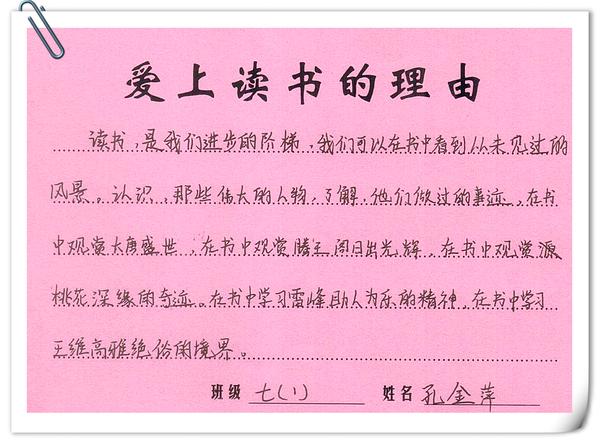 爱上读书的理由
读书，是我们进步的阶梯，我们可以在书中看到从未见过的
风景。认识，那些伟大的人物，了解，他们做过的事迹，在书
中观赏大唐盛世，在书中观赏滕王阁日出光辉，在书中观赏源
桃花深缘的奇迹。在书中学习雷峰助人为乐的精神，在书中学习
王维高雅绝俗的境界。
班级 七(1) 姓名 孔金萍